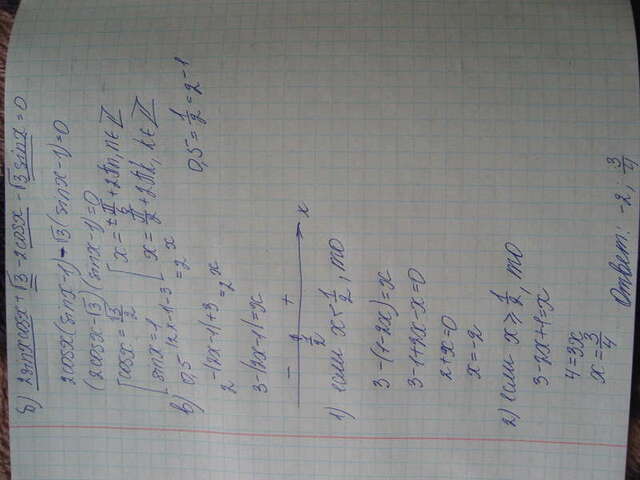 б) 2sinxcosx + √3 - 2cosx - √3 sinx = 0
2cosx(sinx-1) - √3(sinx-1)=0
(2cosx-√3)(sinx-1)=0
[cosx = √3/2 [x = ±π/6 + 2πn, n∈Z
[sinx = 1 [x = π/2 + 2πk, k∈Z
в) 0,5^(|2x-1|-3) = 2^x 0,5 = 1/2 = 2^-1
2^(-|2x-1|+3) = 2^x
3-|2x-1|=x
- 1/2 + x
1) если x < 1/2, то
3-(1-2x)=x
3-1+2x-x=0
2+x=0
x=-2
2) если x ≥ 1/2, то
3-2x+1=x
4=3x
x=3/4
Ответ: -2; 3/4